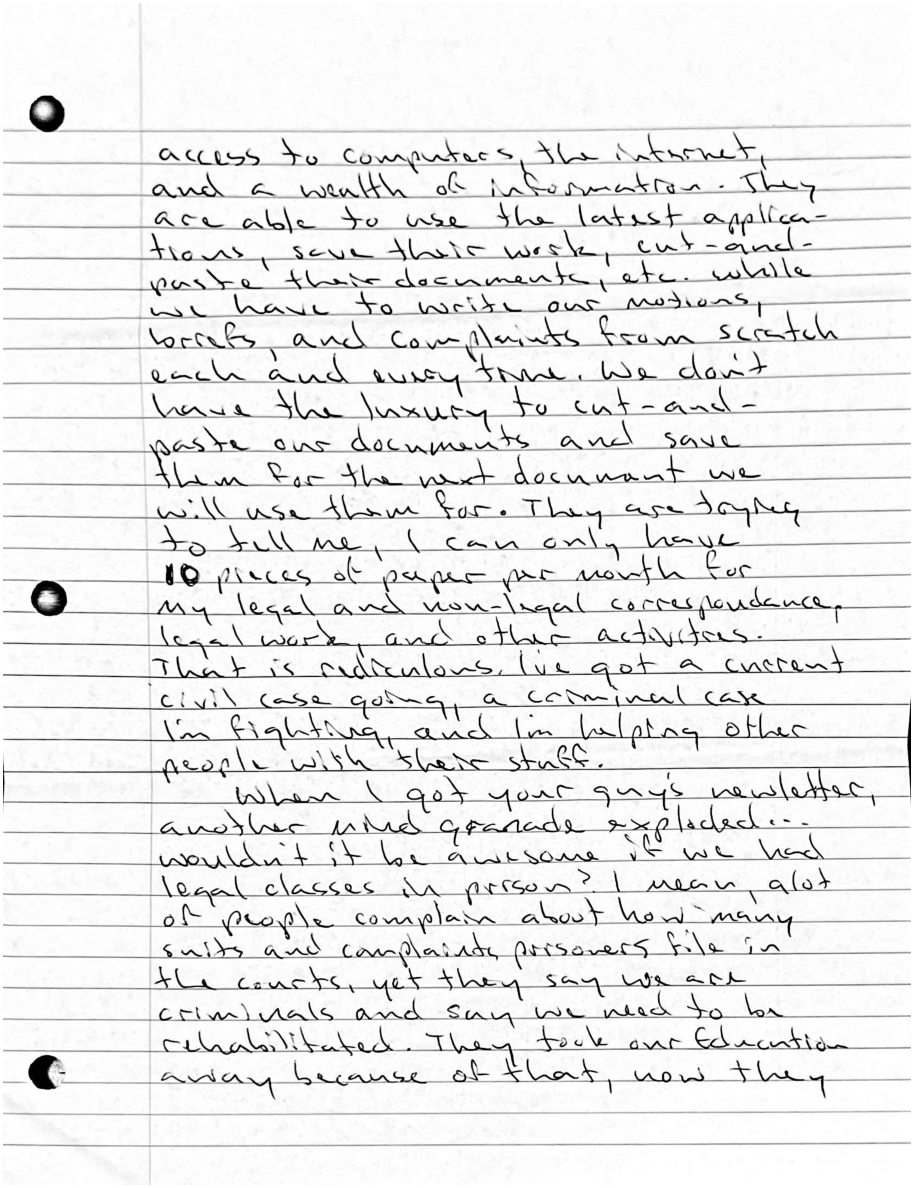 access to computers, the internet,
and a wealth of information. They
are able to use the latest applica-
tions, save their work, cut-and-
paste their documents, etc. while
we have to write our motions,
briefs, and complaints from scratch
each and every time. We don't
have the luxury to cut-and-
paste our documents and save
them for the next document we
will use them for. They are trying
to tell me, I can only have
10 pieces of paper per month for
my legal and non-legal correspondance,
legal work, and other activities.
That is rediculous. I've got a current
civil case going, a criminal case
I'm fighting, and I'm helping other
people with their stuff.
When I got your guy's newsletter,
another mind granade exploded...
wouldn't it be awesome if we had
legal classes in prison? I mean, alot
of people complain about how many
suits and complaints prisoners file in
the courts, yet they say we are
criminals and say we need to be
rehabilitated. They took our Education
away because of that, now they